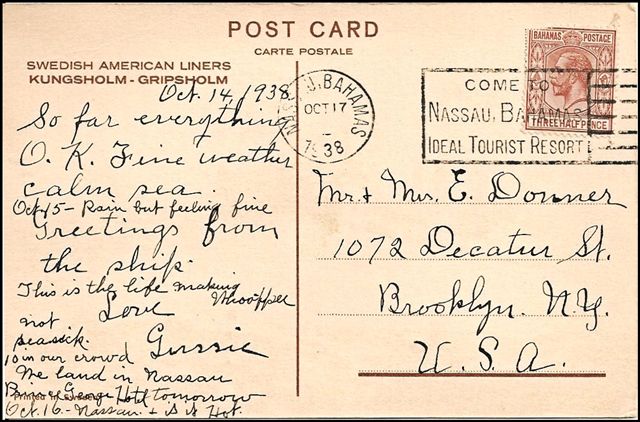 POST CARD
CARTE POSTALE
SWEDISH AMERICAN LINERS
KUNGSHOLM - GRIPSHOLM
Oct. 14, 1938
So far everything
O. K. Fine weather
calm sea.
Oct 15 - Rain but feeling fine
Greetings from
the ship.
This is the life making
Whoopper
Love
not
seasick.
Gussie
10 in our crowd
We land in Nassau
George Hotel tomorrow
Oct. 16 - Nassau. Hot.
BAHAMAS
OCT 17
1938
COME TO
NASSAU, BAHAMAS
IDEAL TOURIST RESORT
BAHAMAS POSTAGE
THREE HALF PENCE
Mr & Mrs. E. Donner
1072 Decatur St.
Brooklyn. N.Y.
U. S. A.